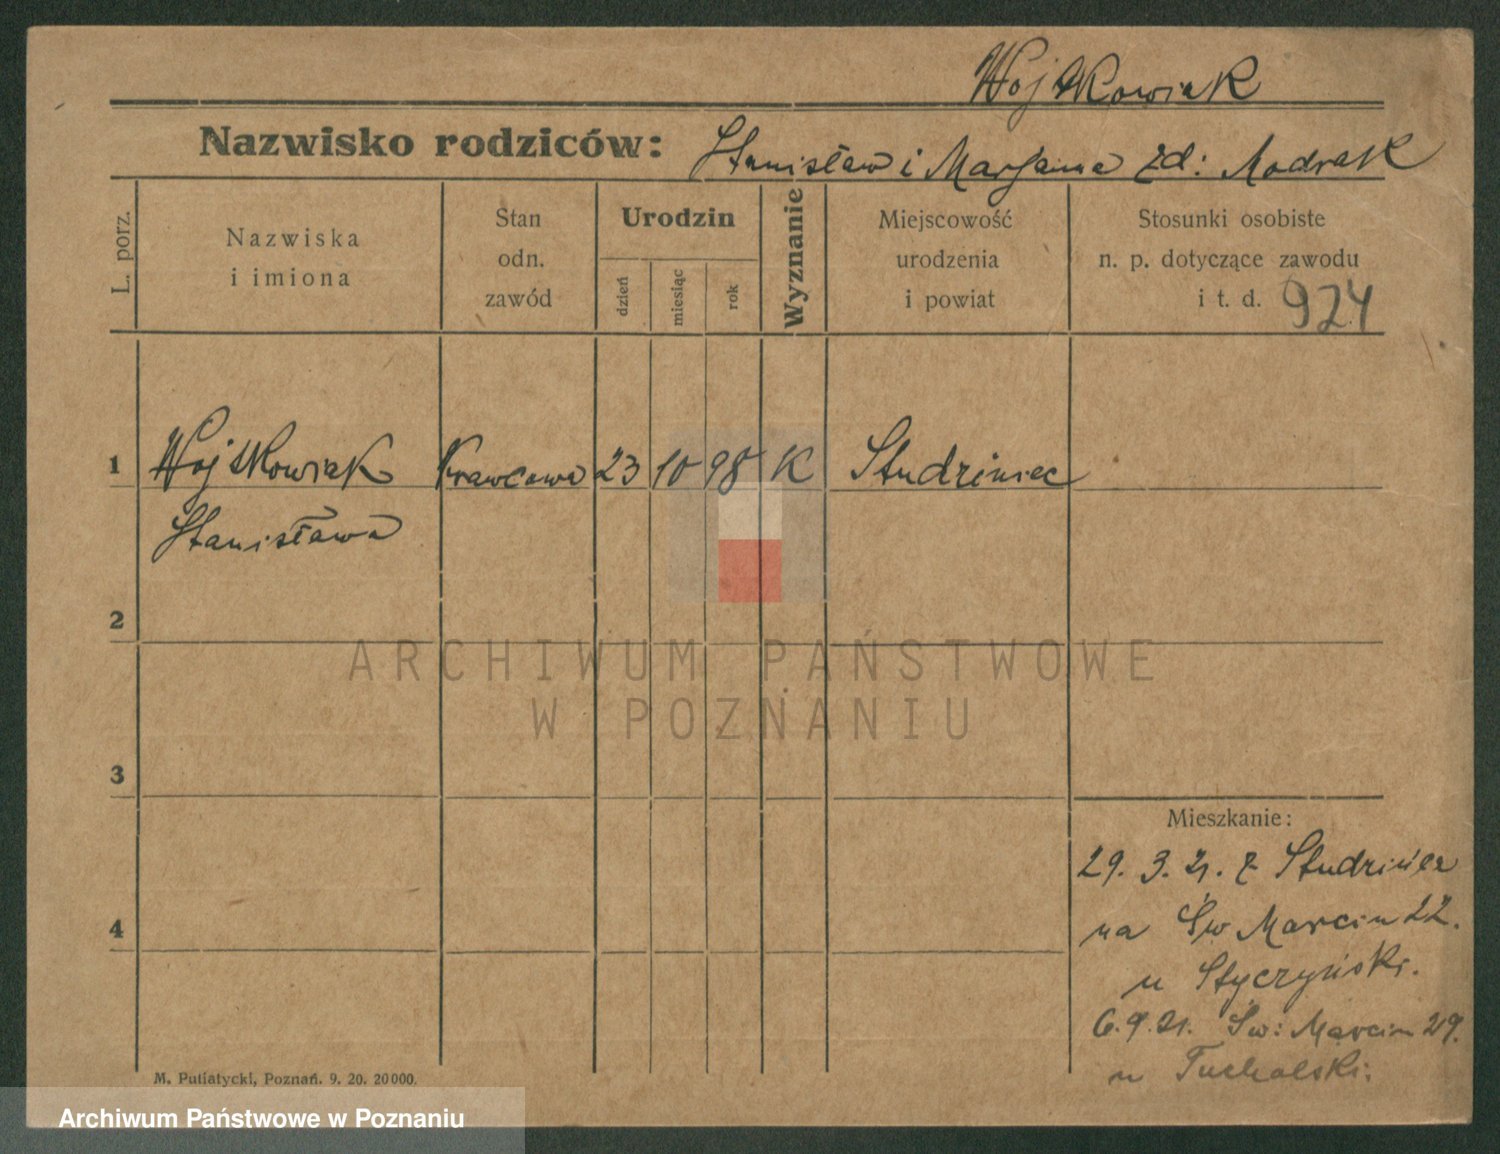 Wojtkowiak
Nazwisko rodziców: Stanisław i Marjanna zd: Modrak
L. porz.
Nazwiska
i imiona
Stan
odn.
zawód
Urodzin
dzień
miesiąc
rok
Wyznanie
Miejscowość
urodzenia
i powiat
Stosunki osobiste
n. p. dotyczące zawodu
i t. d. 924
1 Wojtkowiak Krawcowa 23 10 98 K Studziniec
Stanisława
2
ARCHIWUM PAŃSTWOWE
W POZNANIU
3
Mieszkanie:
29. 3. 21. z Studzińca
4
na Św Marcin 22.
u Styczyński.
6. 9. 21. Św: Marcin 29.
u Tucholski.
M. Putiatycki, Poznań. 9. 20. 20000.
Archiwum Państwowe w Poznaniu